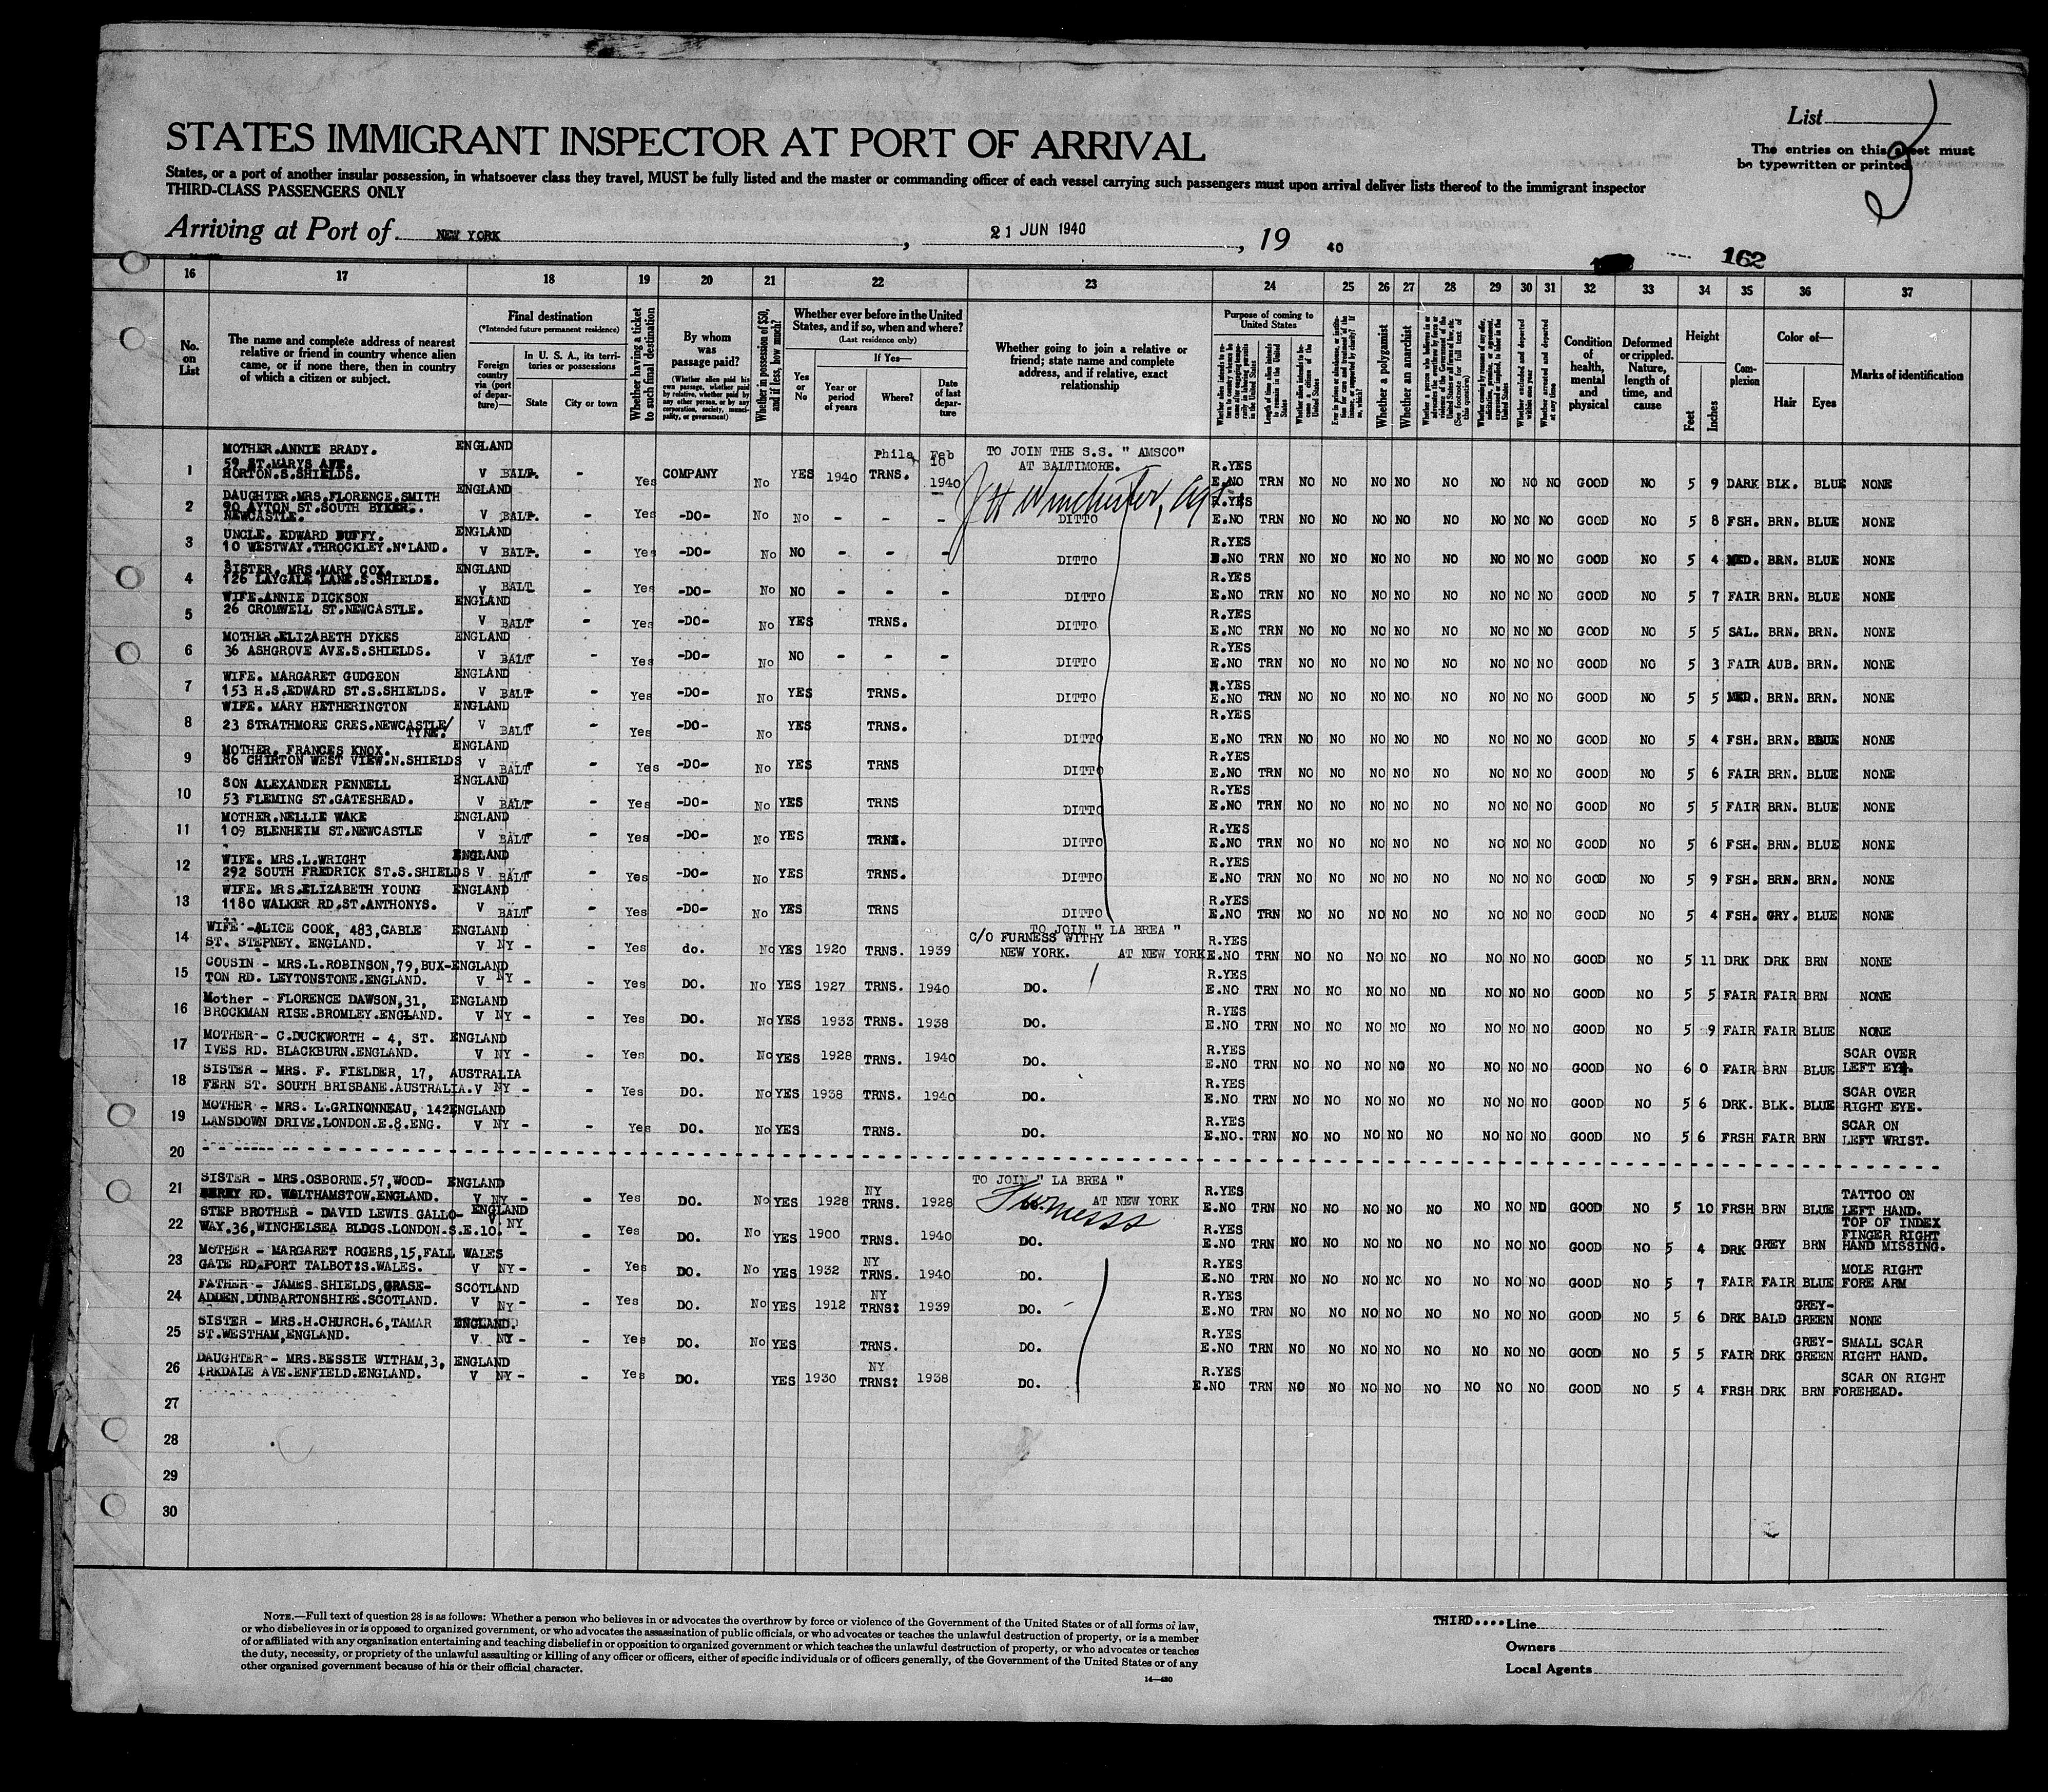 List
STATES IMMIGRANT INSPECTOR AT PORT OF ARRIVAL
The entries on this sheet must
be typewritten or printed
States, or a port of another insular possession, in whatsoever class they travel, MUST be fully listed and the master or commanding officer of each vessel carrying such passengers must upon arrival deliver lists thereof to the immigrant inspector
THIRD-CLASS PASSENGERS ONLY
Arriving at Port of NEW YORK, 21 JUN 1940, 19 40
162
16 17 18 19 20 21 22 23 24 25 26 27 28 29 30 31 32 33 34 35 36 37
No. on List
The name and complete address of nearest
relative or friend in country whence alien
came, or if none there, then in country
of which a citizen or subject.
Final destination
(*Intended future permanent residence)
Foreign country via (port of departure)—
In U. S. A., its territories or possessions
State
City or town
Whether having a ticket to such final destination
By whom was passage paid?
(Whether alien paid his own passage, whether paid by relative, whether paid by any other person, or by any corporation, society, municipality, or government)
Whether in possession of $50, and if less, how much?
Whether ever before in the United
States, and if so, when and where?
(Last residence only)
Yes or No
If Yes—
Year or period of years
Where?
Date of last departure
Whether going to join a relative or
friend; state name and complete
address, and if relative, exact
relationship
Purpose of coming to United States
Length of time alien intends to remain in the United States
Whether alien intends to become a citizen of the United States
Whether a polygamist
Whether an anarchist
Whether excluded and deported within one year
Whether arrested and deported at any time
Condition of health, mental and physical
Deformed or crippled. Nature, length of time, and cause
Height
Feet
Inches
Complexion
Color of—
Hair
Eyes
Marks of identification
1 MOTHER.ANNIE BRADY. ENGLAND Phila Feb 10 TO JOIN THE S.S. " AMSCO"
59 ST.MARYS AVE. AT BALTIMORE. R.YES
HORTON.S.SHIELDS. V BALT. - Yes COMPANY No YES 1940 TRNS. 1940 E.NO TRN NO NO NO NO NO NO NO NO GOOD NO 5 9 DARK BLK. BLUE NONE
J H Winchester, Agt
2 DAUGHTER.MRS.FLORENCE.SMITH ENGLAND R.YES
90 AYTON ST.SOUTH BYKER.
NEWCASTLE. V BALT. - Yes -DO- No No - - - DITTO E.NO TRN NO NO NO NO NO NO NO NO GOOD NO 5 8 FSH. BRN. BLUE NONE
3 UNCLE. EDWARD DUFFY. ENGLAND R.YES
10 WESTWAY.THROCKLEY.N'LAND. V BALT. - Yes -DO- No NO - - - DITTO E.NO TRN NO NO NO NO NO NO NO NO GOOD NO 5 4 MED. BRN. BLUE NONE
4 SISTER. MRS.MARY COX. ENGLAND R.YES
126 LAYGALE LANE.S.SHIELDS. V BALT - Yes -DO- No NO - - - DITTO E.NO TRN NO NO NO NO NO NO NO NO GOOD NO 5 7 FAIR BRN. BLUE NONE
5 WIFE.ANNIE DICKSON ENGLAND R.YES
26 CROMWELL ST.NEWCASTLE. V BALT - Yes -DO- No YES TRNS. DITTO E.NO TRN NO NO NO NO NO NO NO NO GOOD NO 5 5 SAL. BRN. BRN. NONE
6 MOTHER.ELIZABETH DYKES ENGLAND R.YES
36 ASHGROVE AVE.S.SHIELDS. V BALT - Yes -DO- No NO - - - DITTO E.NO TRN NO NO NO NO NO NO NO NO GOOD NO 5 3 FAIR AUB. BRN. NONE
7 WIFE. MARGARET GUDGEON ENGLAND R.YES
153 H.S.EDWARD ST.S.SHIELDS. V BALT - Yes -DO- No YES TRNS. DITTO E.NO TRN NO NO NO NO NO NO NO NO GOOD NO 5 5 MED. BRN. BRN. NONE
8 WIFE. MARY HETHERINGTON ENGLAND R.YES
23 STRATHMORE CRES.NEWCASTLE/
TYNE. V BALT - Yes -DO- No YES TRNS. DITTO E.NO TRN NO NO NO NO NO NO NO NO GOOD NO 5 4 FSH. BRN. BLUE NONE
9 MOTHER. FRANCES KNOX. ENGLAND R.YES
86 CHIRTON WEST VIEW.N.SHIELDS V BALT - Yes -DO- No YES TRNS DITTO E.NO TRN NO NO NO NO NO NO NO NO GOOD NO 5 6 FAIR BRN. BLUE NONE
10 SON ALEXANDER PENNELL ENGLAND R.YES
53 FLEMING ST.GATESHEAD. V BALT - Yes -DO- No YES TRNS DITTO E.NO TRN NO NO NO NO NO NO NO NO GOOD NO 5 5 FAIR BRN. BLUE NONE
11 MOTHER.NELLIE WAKE ENGLAND R.YES
109 BLENHEIM ST.NEWCASTLE V BALT - Yes -DO- No YES TRNS. DITTO E.NO TRN NO NO NO NO NO NO NO NO GOOD NO 5 6 FSH. BRN. BLUE NONE
12 WIFE. MRS.L.WRIGHT ENGLAND R.YES
292 SOUTH FREDRICK ST.S.SHIELDS V BALT - Yes -DO- No YES TRNS. DITTO E.NO TRN NO NO NO NO NO NO NO NO GOOD NO 5 9 FSH. BRN. BRN. NONE
13 WIFE. MRS.ELIZABETH YOUNG ENGLAND R.YES
1180 WALKER RD.ST.ANTHONYS. V BALT - Yes -DO- No YES TRNS DITTO E.NO TRN NO NO NO NO NO NO NO NO GOOD NO 5 4 FSH. GRY. BLUE NONE
14 WIFE -ALICE COOK, 483,CABLE ENGLAND TO JOIN " LA BREA "
C/O FURNESS WITHY R.YES
ST. STEPNEY. ENGLAND. V NY - - Yes do. No YES 1920 TRNS. 1939 NEW YORK. AT NEW YORK E.NO TRN NO NO NO NO NO NO NO NO GOOD NO 5 11 DRK DRK BRN NONE
15 COUSIN - MRS.L.ROBINSON,79,BUX- ENGLAND R.YES
TON RD. LEYTONSTONE.ENGLAND. V NY - Yes DO. No YES 1927 TRNS. 1940 DO. E.NO TRN NO NO NO NO NO NO NO NO GOOD NO 5 5 FAIR FAIR BRN NONE
16 Mother - FLORENCE DAWSON,31, ENGLAND R.YES
BROCKMAN RISE.BROMLEY.ENGLAND. V NY - - Yes DO. No YES 1933 TRNS. 1938 DO. E.NO TRN NO NO NO NO NO NO NO NO GOOD NO 5 9 FAIR FAIR BLUE NONE
17 MOTHER - C.DUCKWORTH - 4, ST. ENGLAND R.YES SCAR OVER
IVES RD. BLACKBURN.ENGLAND. V NY - - Yes DO. No YES 1928 TRNS. 1940 DO. E.NO TRN NO NO NO NO NO NO NO NO GOOD NO 6 0 FAIR BRN BLUE LEFT EYE.
18 SISTER - MRS. F. FIELDER, 17, AUSTRALIA R.YES SCAR OVER
FERN ST. SOUTH BRISBANE.AUSTRALIA. V NY - - Yes DO. No YES 1938 TRNS. 1940 DO. E.NO TRN NO NO NO NO NO NO NO NO GOOD NO 5 6 DRK. BLK. BLUE RIGHT EYE.
19 MOTHER - MRS. L.GRINONNEAU, 142 ENGLAND R.YES SCAR ON
LANSDOWN DRIVE.LONDON.E.8.ENG. V NY - - Yes DO. No YES TRNS. DO. E.NO. TRN NO NO NO NO NO NO NO NO GOOD NO 5 6 FRSH FAIR BRN LEFT WRIST.
20
21 SISTER - MRS.OSBORNE.57,WOOD- ENGLAND NY TO JOIN " LA BREA " R.YES TATTOO ON
BERRY RD. WALTHAMSTOW.ENGLAND. V NY - - Yes DO. No YES 1928 TRNS. 1928 AT NEW YORK E.NO TRN NO NO NO NO NO NO NO NO GOOD NO 5 10 FRSH BRN BLUE LEFT HAND.
Furness
22 STEP BROTHER - DAVID LEWIS GALLO- ENGLAND R.YES TOP OF INDEX
FINGER RIGHT
WAY.36,WINCHELSEA BLDGS.LONDON.S.E.10. V NY - - Yes DO. No YES 1900 TRNS. 1940 DO. E.NO TRN NO NO NO NO NO NO NO NO GOOD NO 5 4 DRK GREY BRN HAND MISSING.
23 MOTHER - MARGARET ROGERS,15,FALL WALES NY R.YES MOLE RIGHT
GATE RD.PORT TALBOT:S.WALES. V NY - - Yes DO. No YES 1932 TRNS. 1940 DO. E.NO TRN NO NO NO NO NO NO NO NO GOOD NO 5 7 FAIR FAIR BLUE FORE ARM
24 FATHER - JAMES SHIELDS,GRASE- SCOTLAND NY R.YES GREY-
ADDEN.DUNBARTONSHIRE.SCOTLAND. V NY - - Yes DO. No YES 1912 TRNS: 1939 DO. E.NO TRN NO NO NO NO NO NO NO NO GOOD NO 5 6 DRK BALD GREEN NONE
25 SISTER - MRS.H.CHURCH.6,TAMAR ENGLAND. R.YES GREY- SMALL SCAR
ST.WESTHAM,ENGLAND. V NY - - Yes DO. No YES TRNS. DO. E.NO TRN NO NO NO NO NO NO NO NO GOOD NO 5 5 FAIR DRK GREEN RIGHT HAND.
26 DAUGHTER - MRS.BESSIE WITHAM,3, ENGLAND NY R.YES SCAR ON RIGHT
IRKDALE AVE.ENFIELD.ENGLAND. V NY - - Yes DO. YES 1930 TRNS: 1938 DO. E.NO TRN NO NO NO NO NO NO NO NO GOOD NO 5 4 FRSH DRK BRN FOREHEAD.
27
28
29
30
NOTE.—Full text of question 28 is as follows: Whether a person who believes in or advocates the overthrow by force or violence of the Government of the United States or of all forms of law,
or who disbelieves in or is opposed to organized government, or who advocates the assassination of public officials, or who advocates or teaches the unlawful destruction of property, or is a member
of or affiliated with any organization entertaining and teaching disbelief in or opposition to organized government or which teaches the unlawful destruction of property, or who advocates or teaches
the duty, necessity, or propriety of the unlawful assaulting or killing of any officer or officers, either of specific individuals or of officers generally, of the Government of the United States or of any
other organized government because of his or their official character.
14—430
THIRD.... Line
Owners
Local Agents